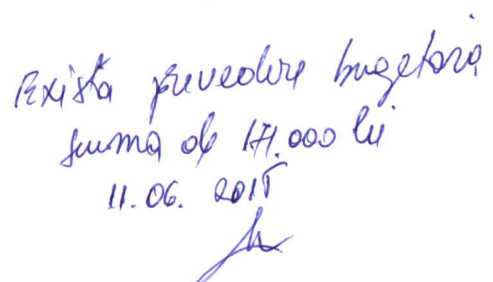 Există prevedere bugetară
suma de 171.000 lei
11.06. 2015